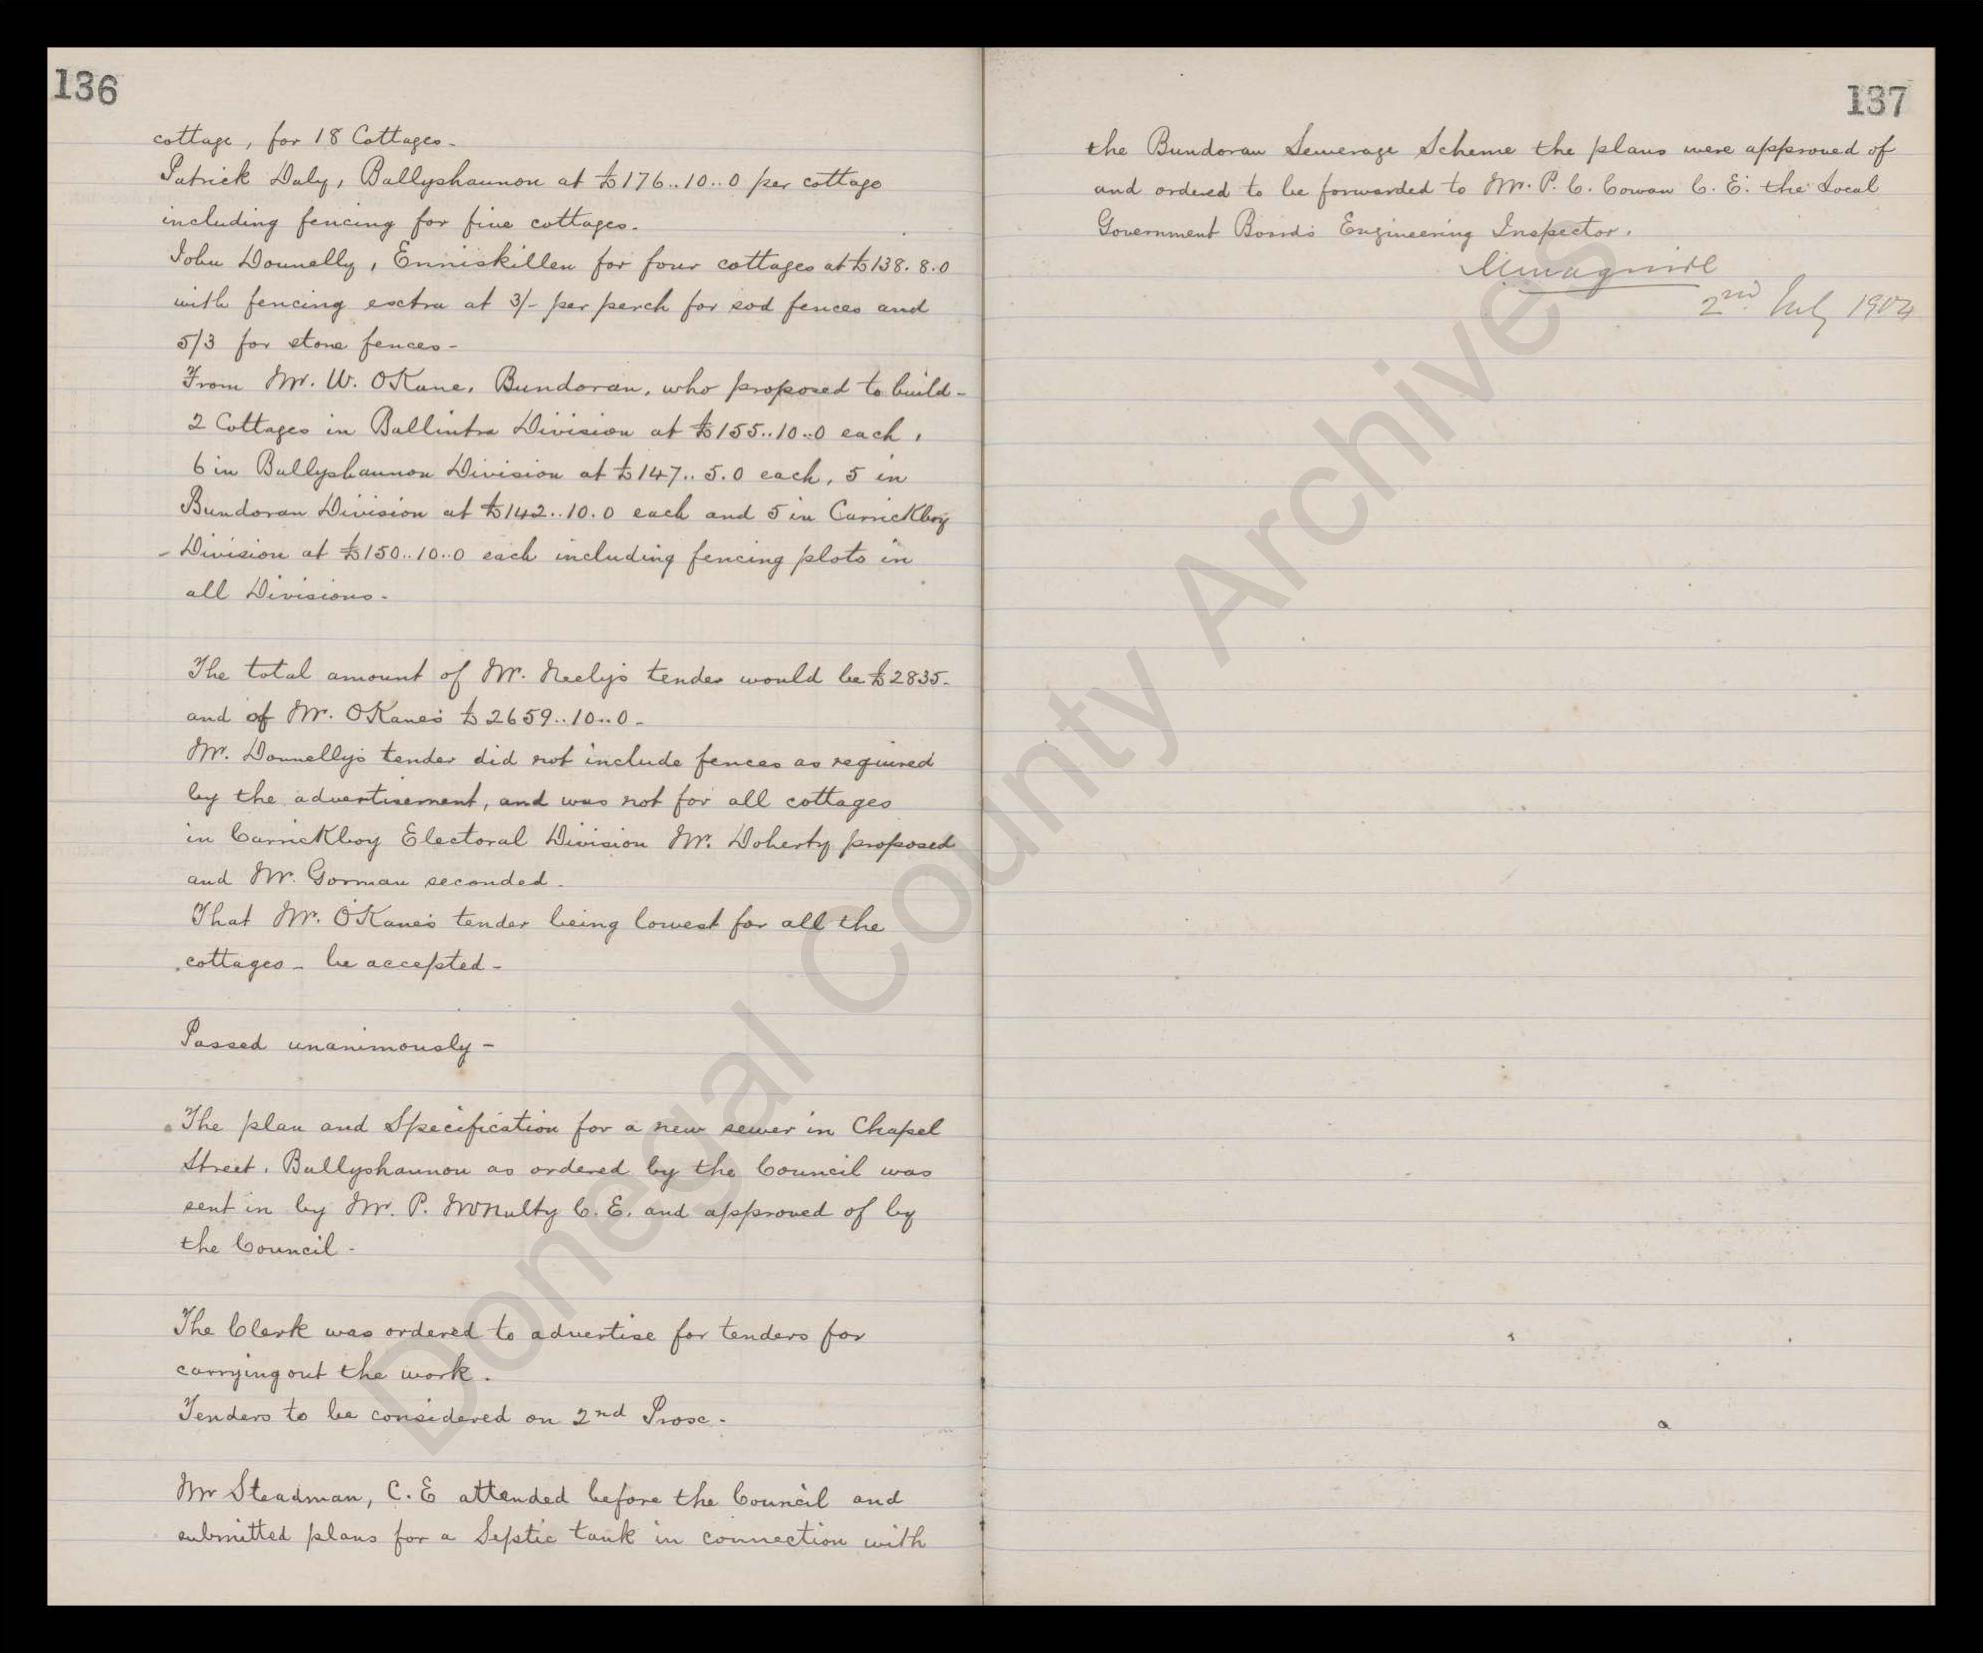 136
cottage, for 18 Cottages-
Patrick Daly, Ballyshannon at £176..10..0 per cottage
including fencing for five cottages.
John Donnelly, Enniskillen for four cottages at £138.8.0
with fencing extra at 3/- per perch for sod fences and
5/3 for stone fences-
From Mr. W. OKane, Bundoran, who proposed to build-
2 Cottages in Ballintra Division at £155..10..0 each,
6 in Ballyshannon Division at £147..5.0 each, 5 in
Bundoran Division at £142..10.0 each and 5 in Carrickboy
- Division at £150..10..0 each including fencing plots in
all Divisions-
The total amount of Mr. Neely's tender would be £2835-
and of Mr. OKane's £2659..10..0-
Mr. Donnelly's tender did not include fences as required
by the advertisement, and was not for all cottages
in Carrickboy Electoral Division Mr. Doherty proposed
and Mr. Gorman seconded-
That Mr. O'Kane's tender being lowest for all the
cottages- be accepted-
Passed unanimously-
The plan and Specification for a new sewer in Chapel
Street, Ballyshannon as ordered by the Council was
sent in by Mr. P. McNulty C.E. and approved of by
the Council-
The Clerk was ordered to advertise for tenders for
carrying out the work.
Tenders to be considered on 2nd Proxo-
Mr Steadman, C.E attended before the Council and
submitted plans for a Septic tank in connection with
137
the Bundoran Sewerage Scheme the plans were approved of
and ordered to be forwarded to Mr. P. C. Cowan C.E. the Local
Government Board's Engineering Inspector.
2nd July 1904
Donegal County Archives